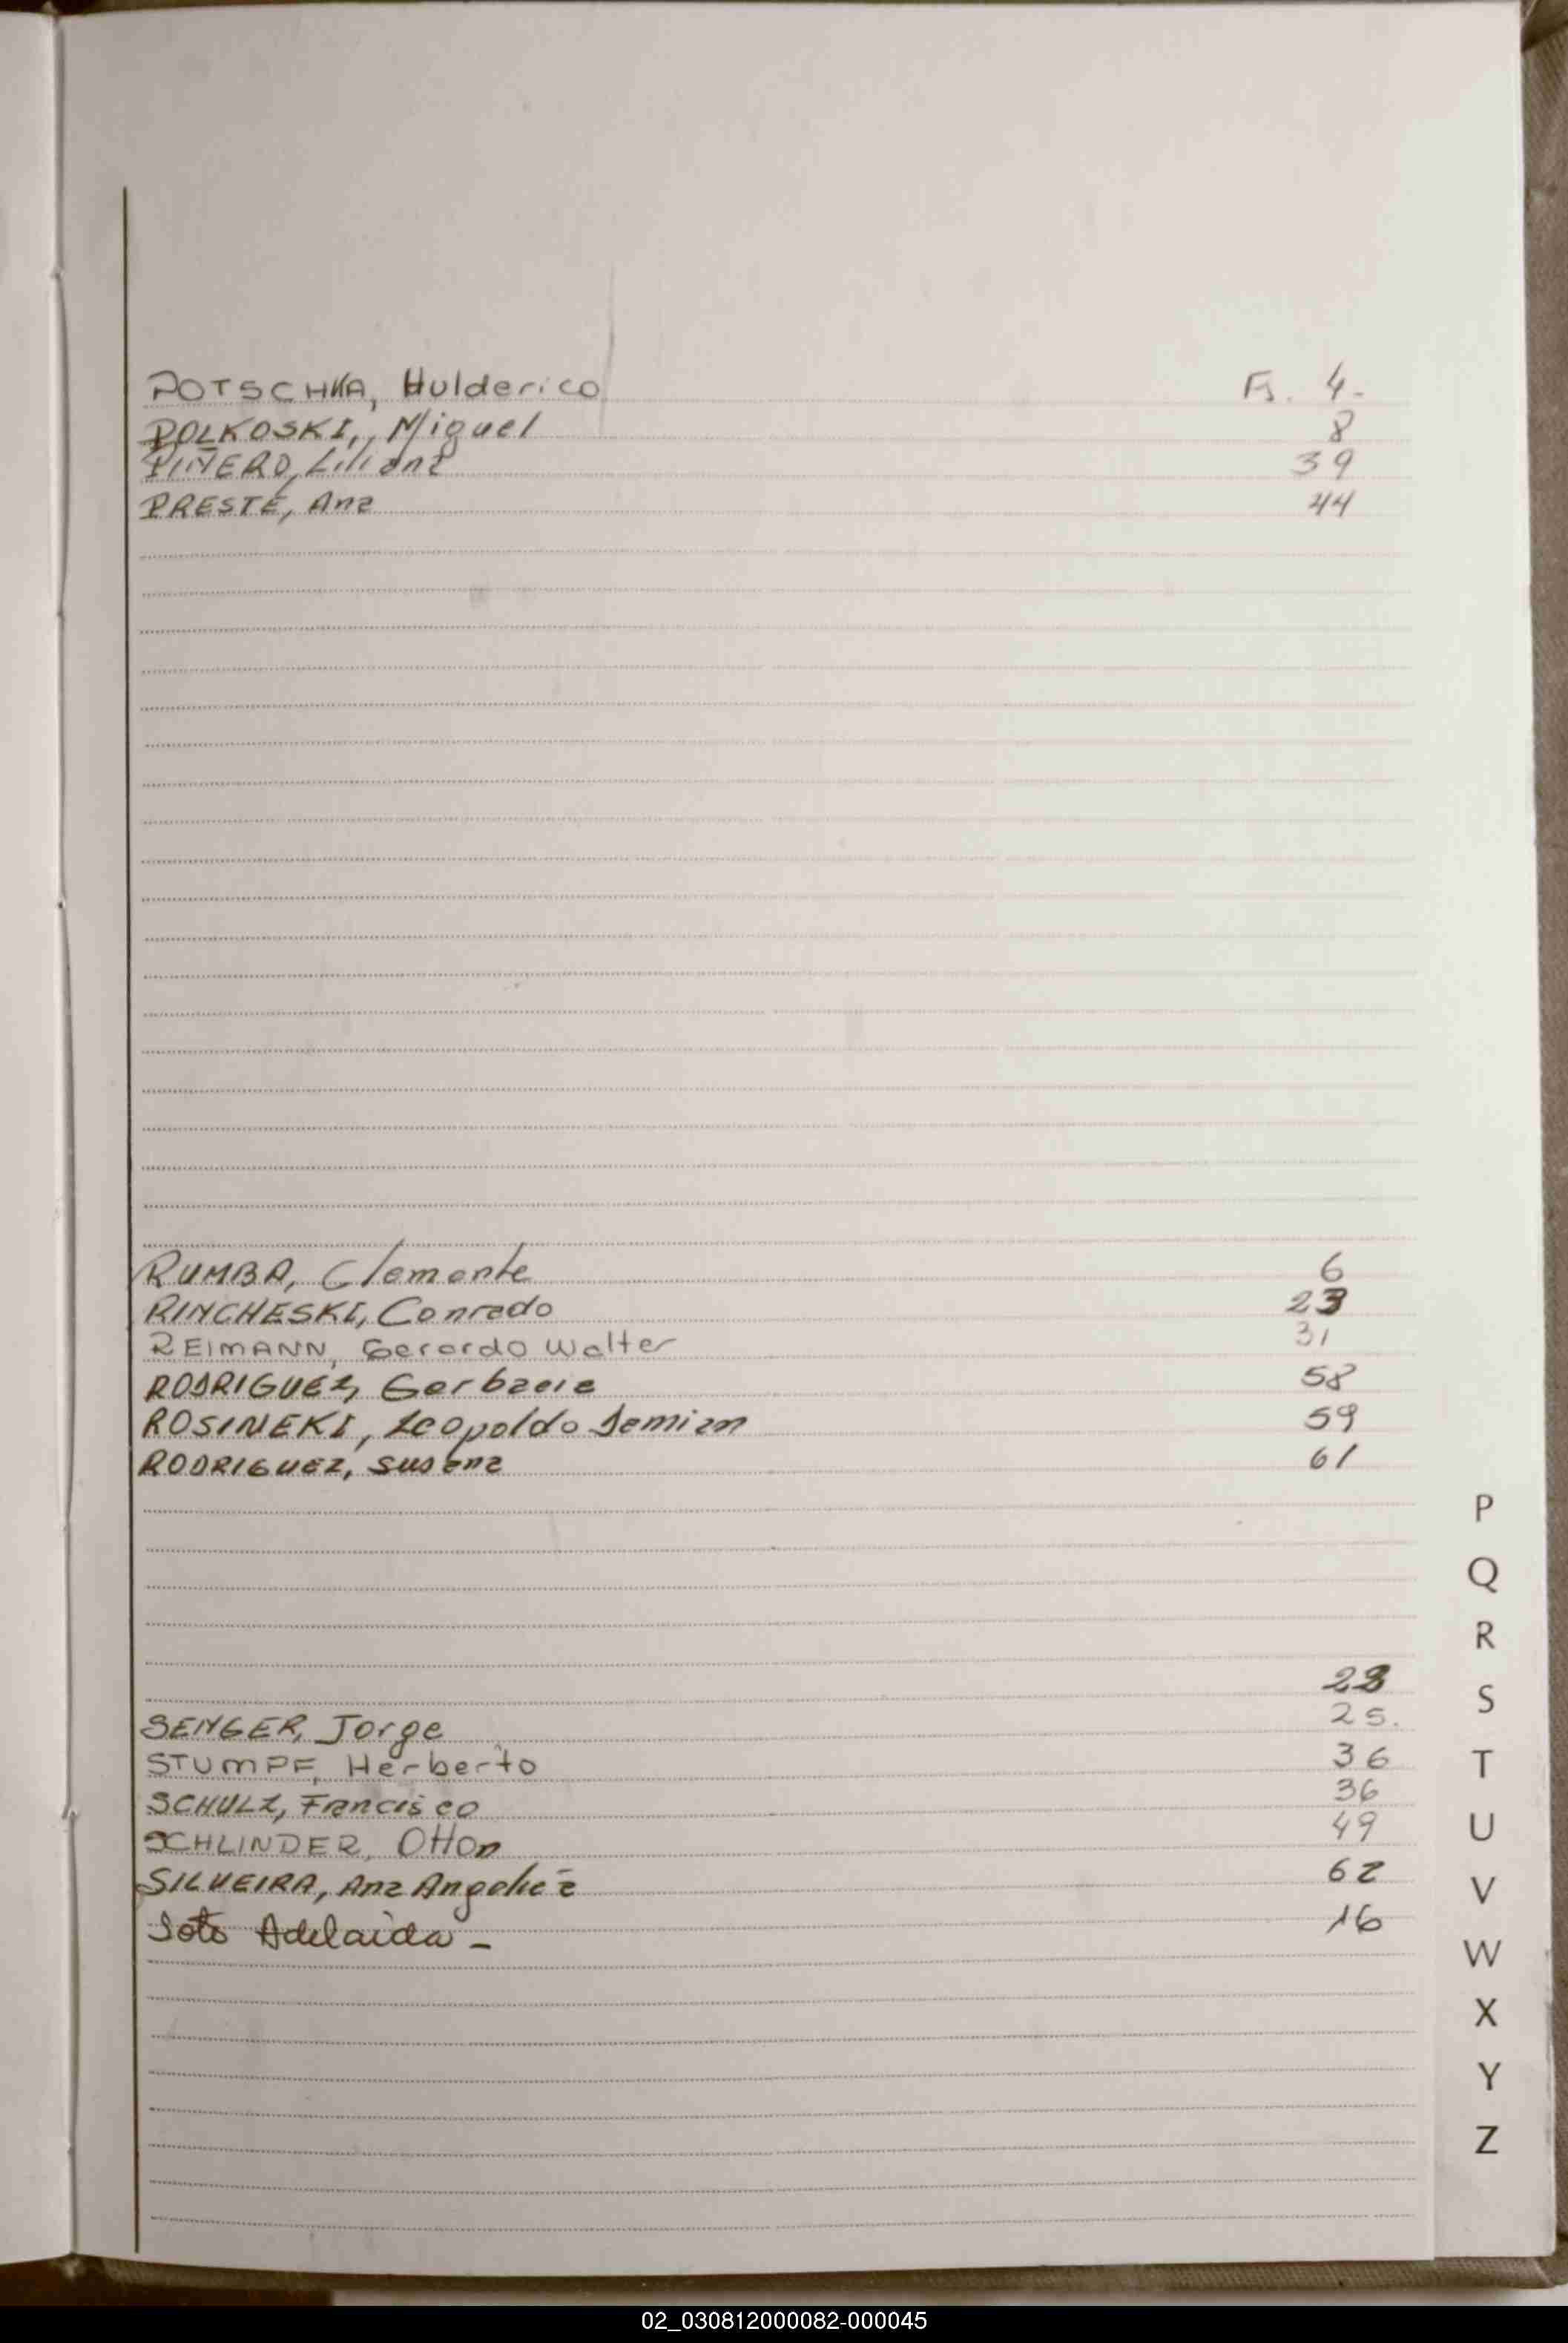 POTSCHKA, Hulderico Fs. 4.
POLKOSKI,, Miguel 8
PIÑERO, Liliana 39
PRESTE, Ana 44
RUMBA, Clemente 6
RINCHESKI, Conrado 23
REIMANN, Gerardo Walter 31
RODRIGUEZ, 58
ROSINEKI, Leopoldo Demian 59
RODRIGUEZ, Susana 61
SENGER, Jorge 28
STUMPF, Herberto 25.
SCHULZ, Francisco 36
SCHLINDER, Otton 36
49
SILVEIRA, Ana Angelica 62
Soto Adelaida - 16
P
Q
R
S
T
U
V
W
X
Y
Z
02_030812000082-000045